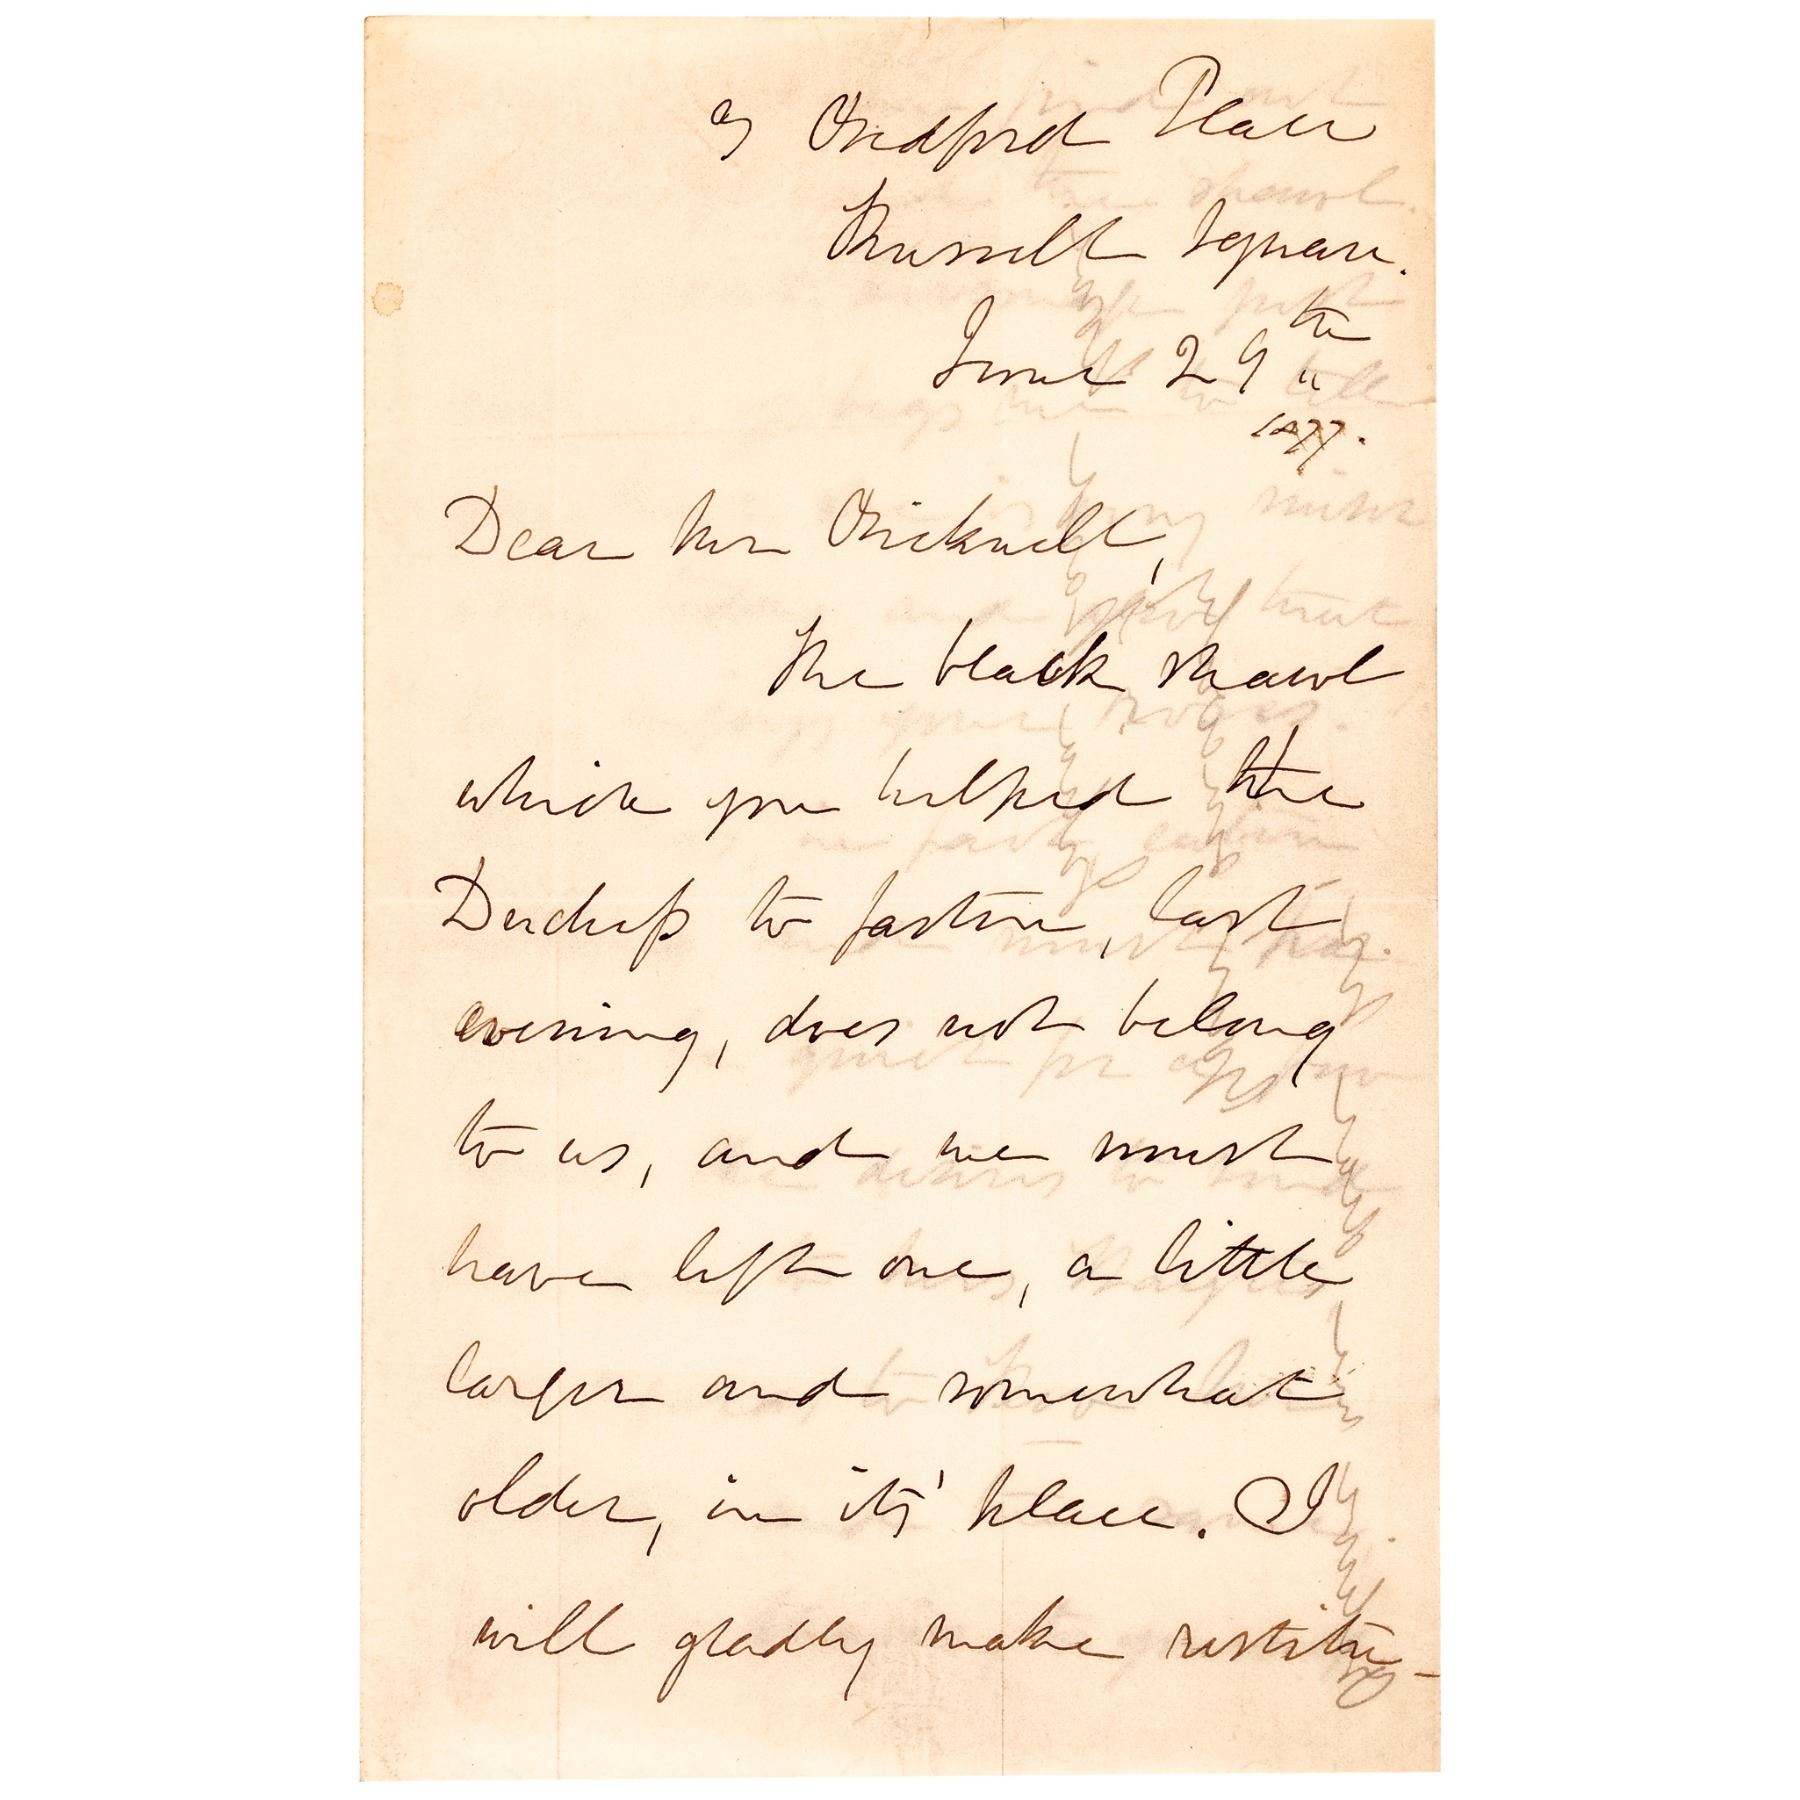 Bedford Place
Russell Square.
June 29th
1877.
Dear Mr Bicknell,
The black shawl
which you helped the
Duchess to fasten, last
evening, does not belong
to us, and we must
have left one, a little
larger and somewhat
older, in its' place. I
will gladly make restitu-